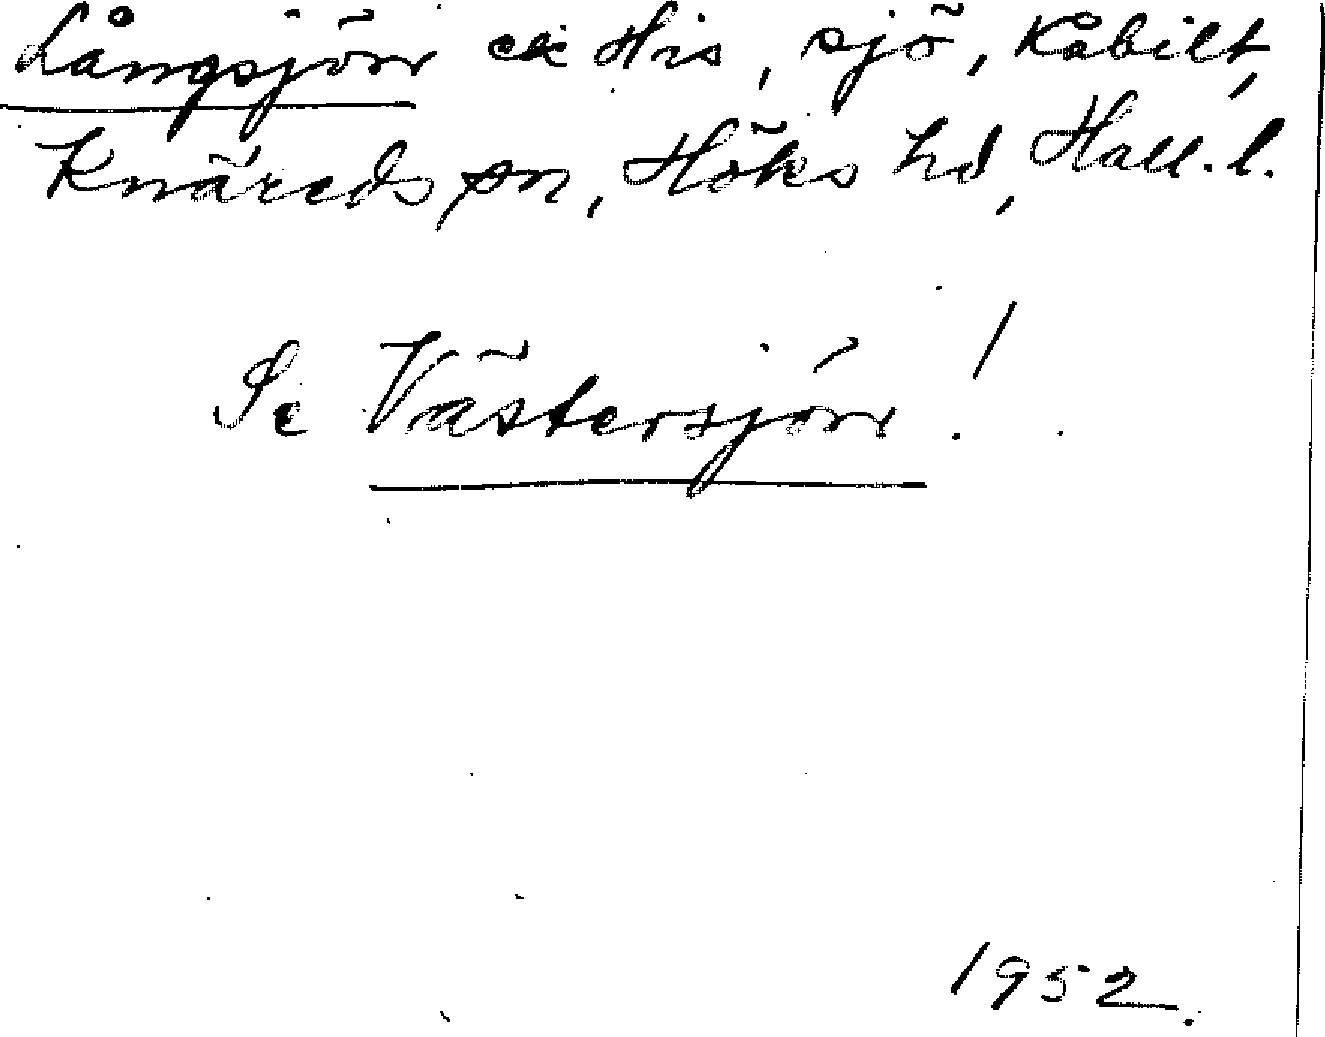 Långsjön el. His, sjö, Kåbilt,
Knäreds sn, Höks hd, Hall. l.
Se Västersjön!
1952.